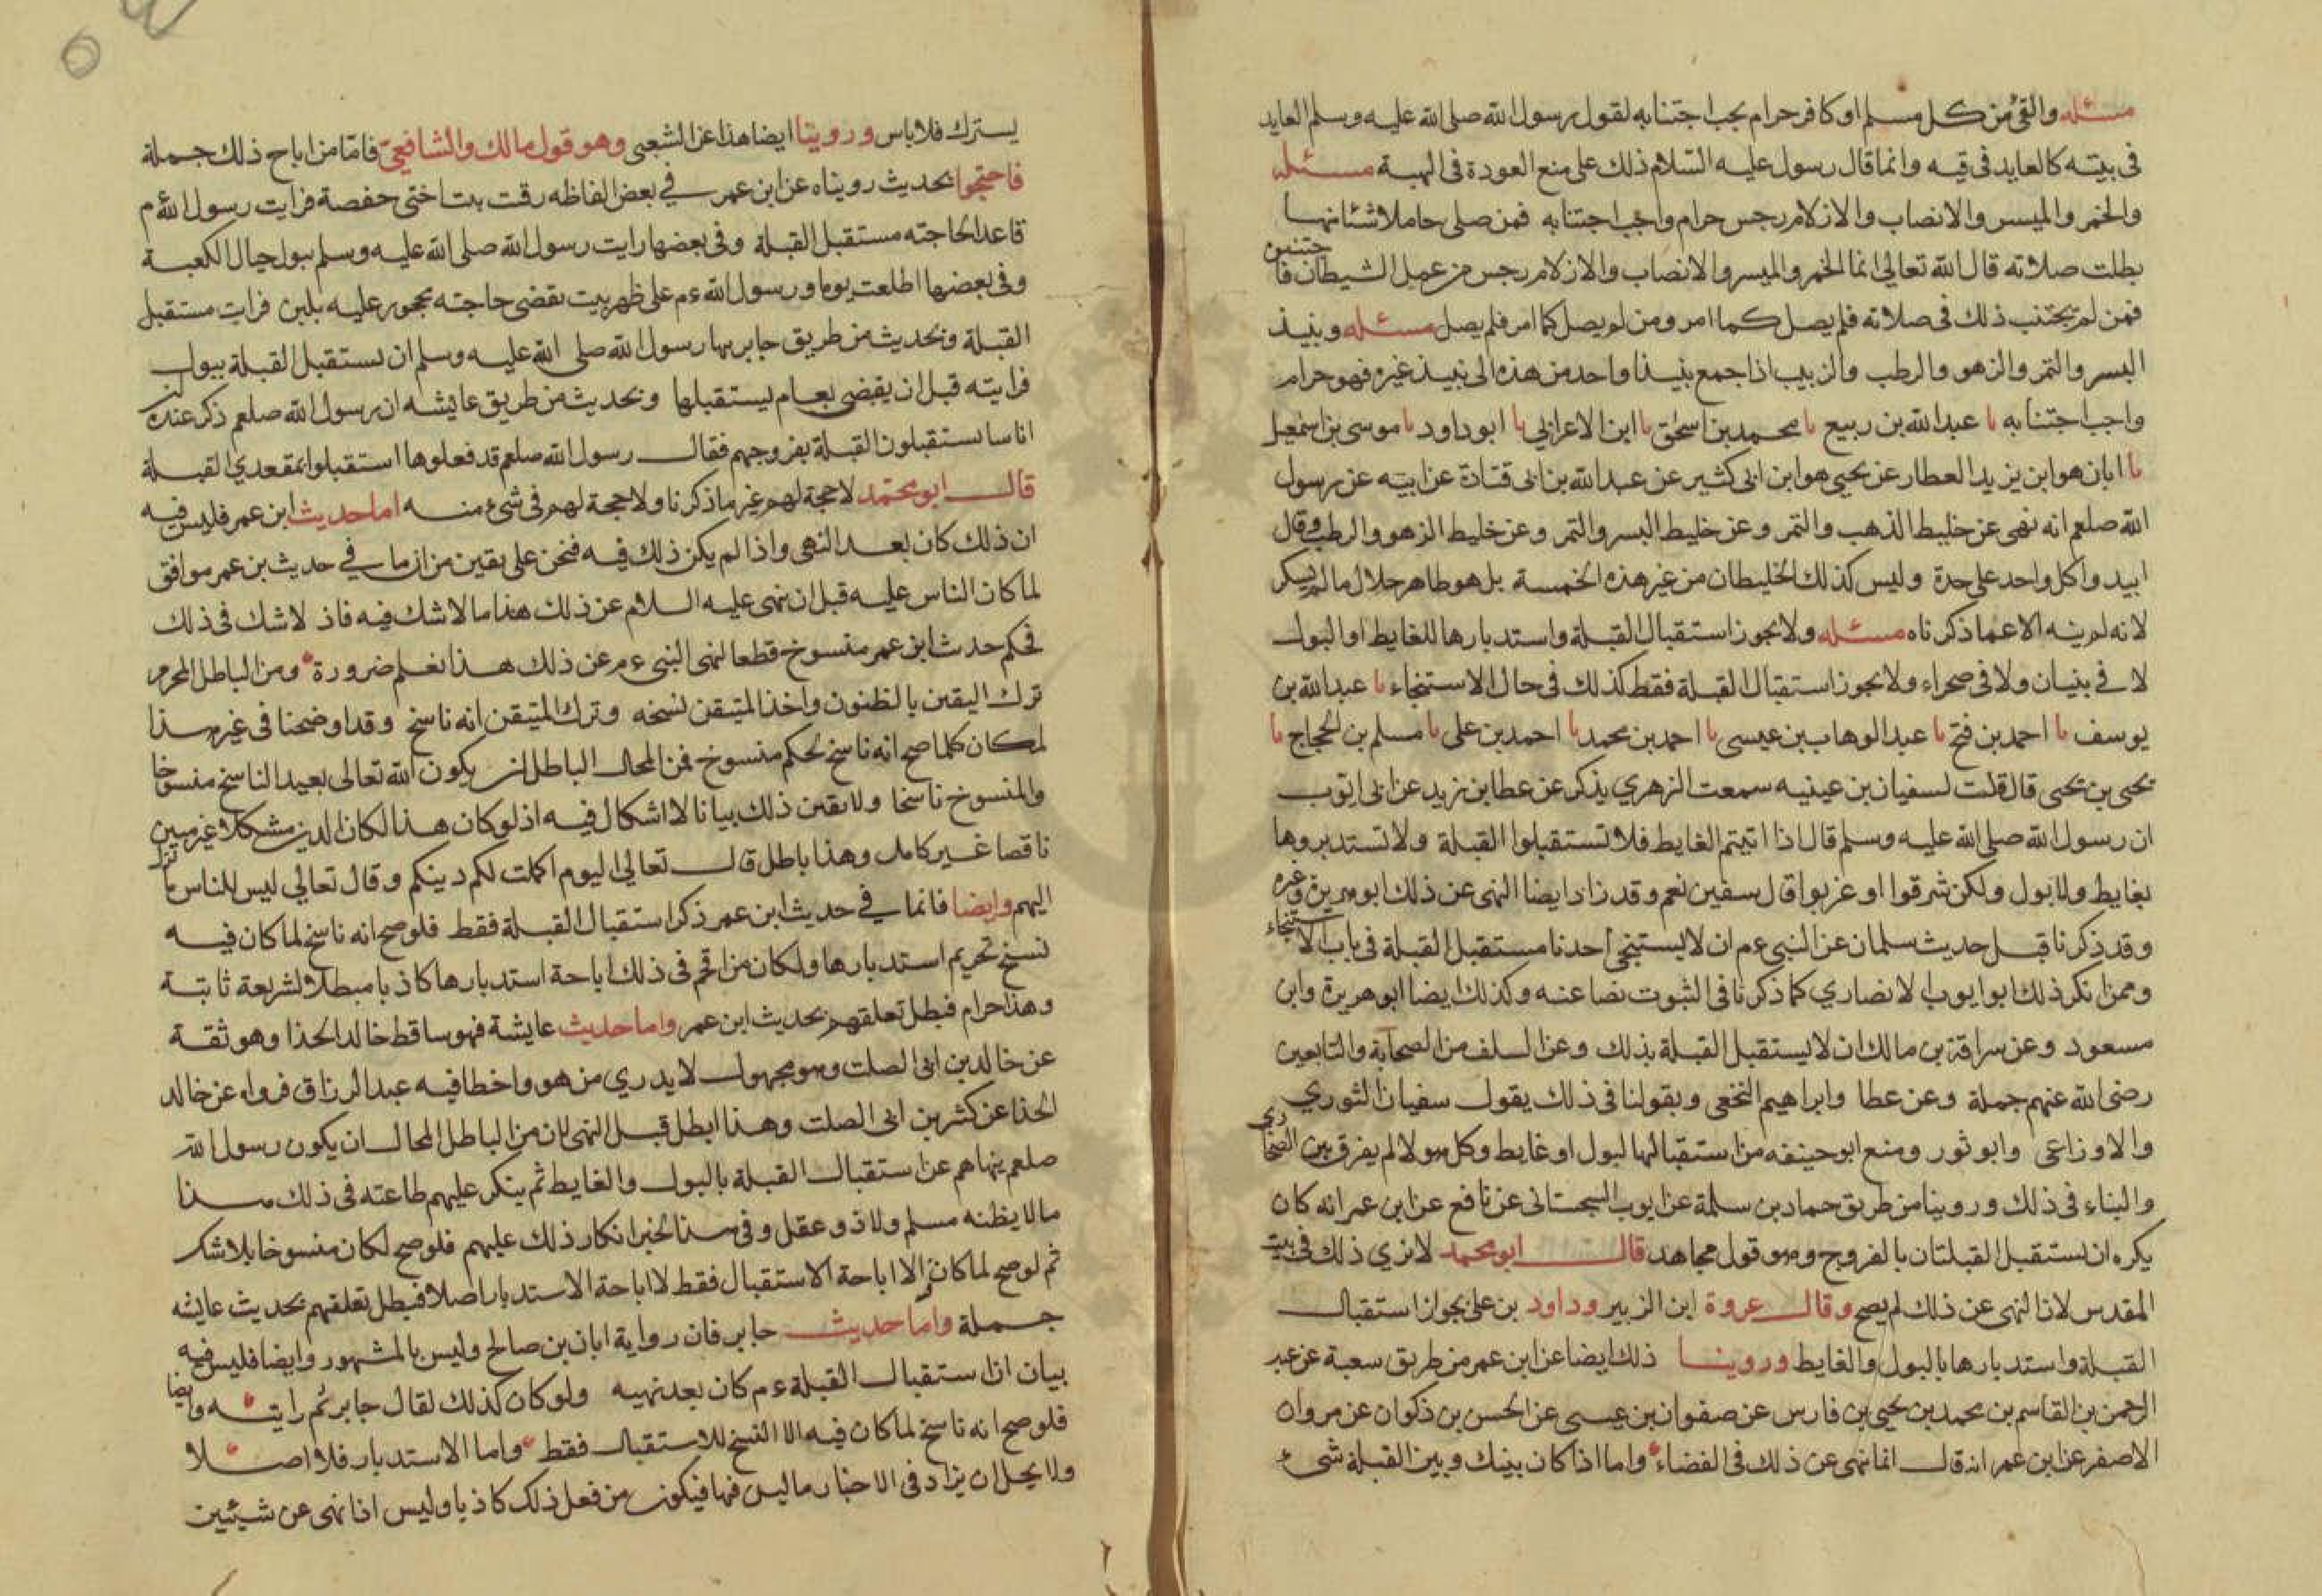 مسئله والقئ من كل مسلم او كافر حرام يجب اجتنابه لقول رسول الله صلى الله عليه وسلم العايد
فى هبته كالعايد فى قيه وانما قال رسول عليه السلام ذلك على منع العودة فى الهبة مسئله
والخمر والميسر والانصاب والازلام رجس حرام واجب اجتنابه فمن صلى حاملا شئا منها
بطلت صلاته قال الله تعالى انما الخمر والميسر والانصاب والازلام رجس من عمل الشيطان فاجتنبوه
فمن لم يجتنب ذلك فى صلاته فلم يصل كما امر ومن لم يصل كما امر فلم يصل مسئله ونبيذ
البسر والتمر والزهو والرطب والزبيب اذا جمع نبيذ واحد من هذه الى نبيذ غيره فهو حرام
واجب اجتنابه نا عبد الله بن ربيع نا محمد بن اسحق نا ابن الاعرابي نا ابو داود نا موسى بن اسمعيل
نا ابان هو ابن يزيد العطار عن يحيى هو ابن ابى كثير عن عبد الله بن ابى قتادة عن ابيه عن رسول
الله صلعم انه نهى عن خليط الذهب والتمر وعن خليط البسر والتمر وعن خليط الزهو والرطب وقال
انبيدوا كل واحد على حدة وليس كذلك الخليطان من غير هذه الخمسة بل هو طاهر حلال ما لم يسكر
لانه لم ينه الا عما ذكرناه مسئله ولا يجوز استقبال القبلة واستدبارها للغايط او البول
لا في بنيان ولا فى صحراء ولا يجوز استقبال القبلة فقط كذلك فى حال الاستنجاء نا عبد الله بن
يوسف نا احمد بن فتح نا عبد الوهاب بن عيسى نا احمد بن محمد نا احمد بن على نا مسلم بن الحجاج نا
يحيى بن يحيى قال قلت لسفيان بن عينيه سمعت الزهري يذكر عن عطا بن يزيد عن ابى ايوب
ان رسول الله صلى الله عليه وسلم قال اذا اتيتم الغايط فلا تستقبلوا القبلة ولا تستدبروها
بغايط ولا بول ولكن شرقوا او غربوا قال سفين نعم وقد زاد ايضا النهى عن ذلك ابو هريرة وغيره
وقد ذكرنا قبل حديث سلمان عن النبي ءم ان لا يستنجى احدنا مستقبل القبلة فى باب الاستنجاء
وممن انكر ذلك ابو ايوب الانصاري كما ذكرنا فى الثبوت نصا عنه وكذلك ايضا ابو هريرة وابن
مسعود وعن سراقة بن مالك ان لا يستقبل القبلة بذلك وعن السلف من الصحابة والتابعين
رضى الله عنهم جملة وعن عطا وابراهيم النخعى وبقولنا فى ذلك يقول سفيان الثوري
والاوزاعى وابو ثور ومنع ابو حنيفه من استقبالها لبول او غايط وكل هولا لم يفرق بين الصحاري
والبناء فى ذلك وروينا من طريق حماد بن سلمة عن ايوب السجستانى عن نافع عن ابن عمر انه كان
يكره ان تستقبل القبلتان بالفروج وهو قول مجاهد قال ابو محمد لا نري ذلك فى بيت
المقدس لان النهى عن ذلك لم يصح وقال عروة ابن الزبير وداود بن على يجواز استقبال
القبلة واستدبارها بالبول والغايط وروينا ذلك ايضا عن ابن عمر من طريق سعبة عن عبد
الرحمن بن القاسم بن محمد بن يحيى بن فارس عن صفوان بن عيسى عن الحسن بن ذكوان عن مروان
الاصفر عن ابن عمر انه قال انما نهى عن ذلك فى الفضاء واما اذا كان بينك وبين القبلة شئ
يسترك فلا باس وروينا ايضا هذا عن الشعبى وهو قول مالك والشافعي فاما من اباح ذلك جملة
فاحتجوا بحديث رويناه عن ابن عمر في بعض الفاظه رقت بيت اختى حفصة فرايت رسول الله ءم
قاعدا لحاجته مستقبل القبلة وفى بعضها رايت رسول الله صلى الله عليه وسلم يبول حيال الكعبة
وفى بعضها اطلعت يوما ورسول الله ءم على ظهر بيت يقضى حاجته محجور عليه بلبن فرايت مستقبل
القبلة وبحديث من طريق جابر نها رسول الله صلى الله عليه وسلم ان نستقبل القبلة ببول
فرايته قبل ان يقبض بعام يستقبلها وبحديث من طريق عايشه ان رسول الله صلعم ذكر عنده ان
اناسا يستقبلون القبلة بفروجهم فقال رسول الله صلعم قد فعلوها استقبلوا بمقعدي القبلة
قال ابو محمد لا حجة لهم غير ما ذكرنا ولا حجة لهم فى شئ منه اما حديث ابن عمر فليس فيه
ان ذلك كان بعد النهى واذا لم يكن ذلك فيه فنحن على يقين من ان ما في حديث بن عمر موافق
لما كان الناس عليه قبل ان نهى عليه السلام عن ذلك هذا ما لا شك فيه فاذ لا شك فى ذلك
فحكم حديث ابن عمر منسوخ قطعا لنهى النبى ءم عن ذلك هذا نعلم ضرورة ومن الباطل المحرم
ترك اليقين بالظنون واخذ المتيقن نسخه وترك المتيقن انه ناسخ وقد اوضحنا فى غير هذا
المكان كلما صح انه ناسخ لحكم منسوخ فمن المحال الباطل ان يكون الله تعالى يعيد الناسخ منسوخا
والمنسوخ ناسخا ولا يقين ذلك بيانا لا اشكال فيه اذ لو كان هذا لكان الدين مشكلا غير مبين
ناقصا غير كامل وهذا باطل قال تعالى اليوم اكملت لكم دينكم وقال تعالى ليبين للناس ما نزل
اليهم وايضا فانما في حديث ابن عمر ذكر استقبال القبلة فقط فلو صح انه ناسخ لما كان فيه
نسخ تحريم استدبارها ولكان من اقحم فى ذلك اباحة استدبارها كاذبا مبطلا لشريعة ثابتة
وهذا حرام فبطل تعلقهم بحديث ابن عمر واما حديث عايشة فهو ساقط خالد الحذا وهو ثقة
عن خالد بن ابى الصلت وهو مجهول لا يدري من هو واخطا فيه عبد الرزاق فرواه عن خالد
الحذا عن كثير بن ابى الصلت وهذا ابطل قبل النهى لان من الباطل المحال ان يكون رسول الله
صلعم ينهاهم عن استقبال القبلة بالبول والغايط ثم ينكر عليهم طاعته فى ذلك هذا
ما لا يظنه مسلم ولا ذو عقل وفى هذا الخبر انكار ذلك عليهم فلو صح لكان منسوخا بلا شك
ثم لو صح لما كان الا اباحة الاستقبال فقط لا اباحة الاستدبار اصلا فبطل تعلقهم بحديث عايشه
جملة واما حديث جابر فان رواية ابان بن صالح وليس بالمشهور وايضا فليس فيه
بيان ان استقبال القبلة ءم كان بعد نهيه ولو كان كذلك لقال جابر ثم رايته وايضا
فلو صح انه ناسخ لما كان فيه الا النسخ للاستقبال فقط واما الاستدبار فلا اصلا
ولا يحل ان يزاد فى الاخبار ما ليس فيها فيكون من فعل ذلك كاذبا وليس اذا نهى عن شيئين